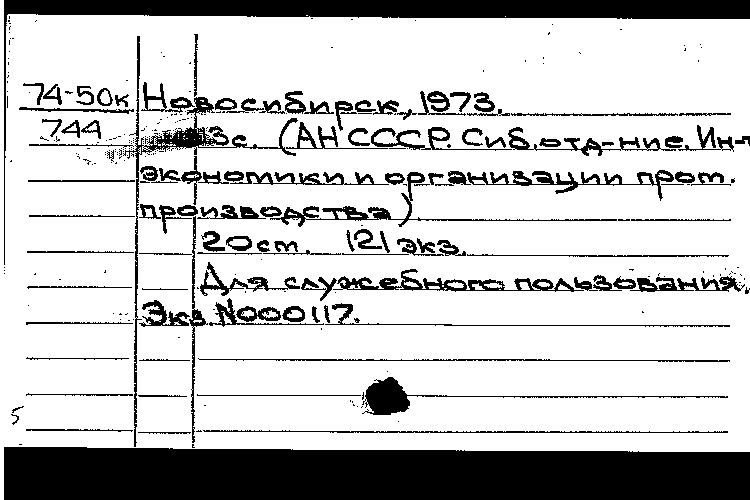 74-50к Новосибирск, 1973.
744 3с. (АН СССР. Сиб. отд-ние. Ин-т
экономики и организации пром.
производства)
20 ст. 121 экз.
Для служебного пользования.
Экз. №000117.
5